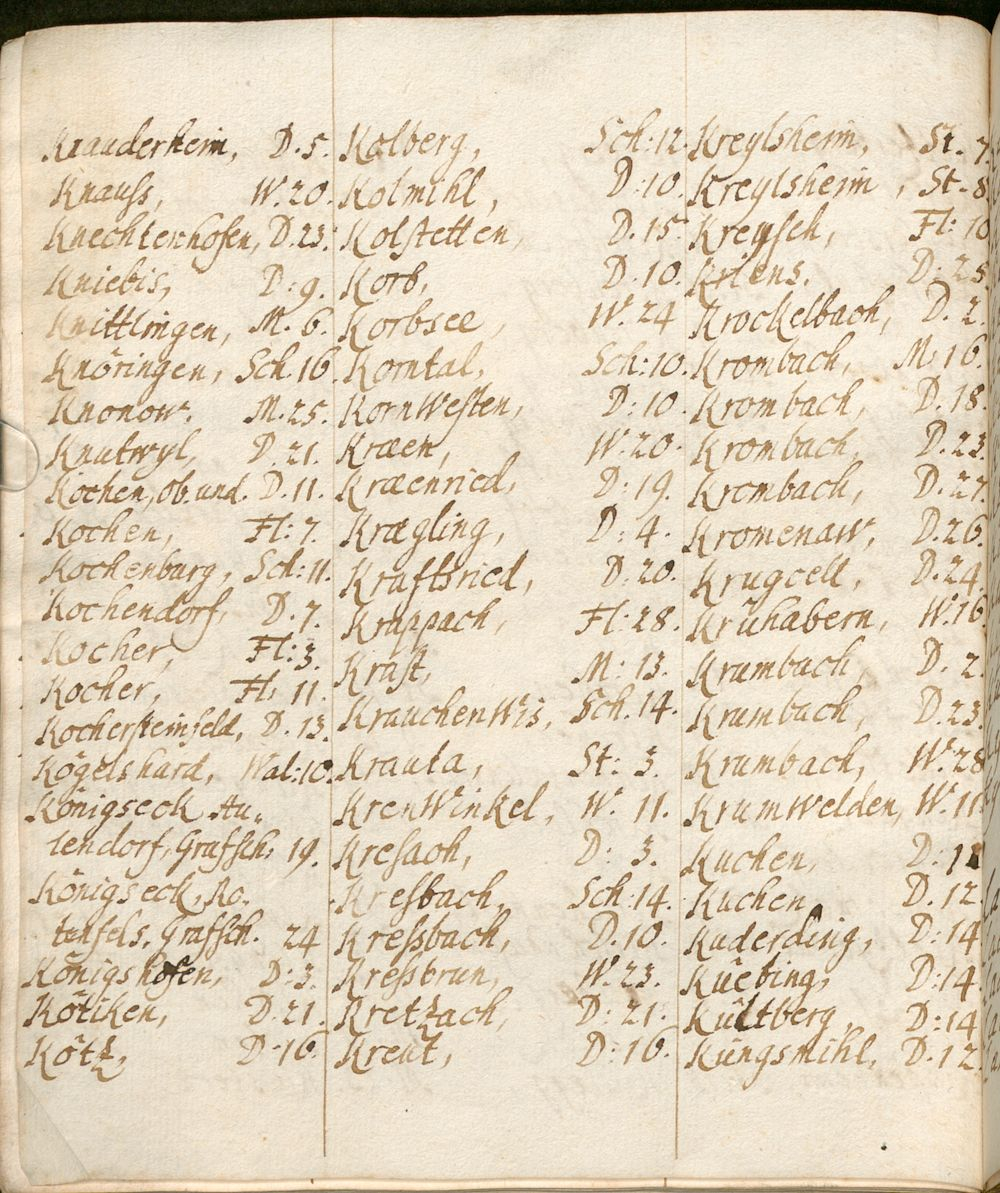 Knauderheim, D. 5.
Knauss, W. 20.
Knechtenhofen, D. 23.
Kniebis, D: 9.
Knittlingen, M. 6.
Knöringen, Sch. 16.
Knonow. M. 25.
Knutwyl, D. 21.
Kochen, ob. und. D. 11.
Kochen, Fl: 7.
Kochenburg, Sch: 11.
Kochendorf, D. 7.
Kocher, Fl: 3.
Kocher, Fl: 11.
Kochersteinfeld, D. 13.
Kögelshard, Wal: 10.
Königseck Au„
lendorf, Grafsch: 19.
Königseck, Ro.
tenfels, Grafsch. 24
Königshofen, D: 3.
Kötiken, D. 21.
Kötz, D. 16.
Kolberg, Sch: 12.
Kolmihl, D: 10.
Kolstetten, D. 15.
Korb, D. 10.
Korbsee, W. 24
Korntal, Sch: 10.
KornWesten, D: 10.
Kræen, W. 20.
Kræenried, D: 19.
Krægling, D: 4.
Kraftsried, D. 20.
Krappach, Fl: 28.
Krast, M: 13.
KrauchenWis, Sch. 14.
Krauta, St: 3.
KrenWinkel, W. 11.
Kresach, D: 3.
Kresbach, Sch: 14.
Kressbach, D. 10.
Kressbrun, W. 23.
Kretzach, D: 21.
Kreut, D: 16.
Kreylsheim, St. 7.
Kreylsheim, St. 8
Kreysch, Fl: 10
Kriens. D: 25
Krockelbach, D. 2.
Krombach, M: 16.
Krombach, D. 18.
Krombach, D. 23.
Krombach, D. 27.
Kromenaw, D. 26.
Krugcell, D. 24
Krühabern, W. 16
Krumbach, D. 2.
Krumbach, D. 23.
Krumbach, W. 28
KrumWelden, W. 11
Kuchen, D:
Kuchen, D. 12
Kuderding, D: 14
Kuebing, D: 14.
Kültberg, D: 14
Küngsmihl, D. 12.